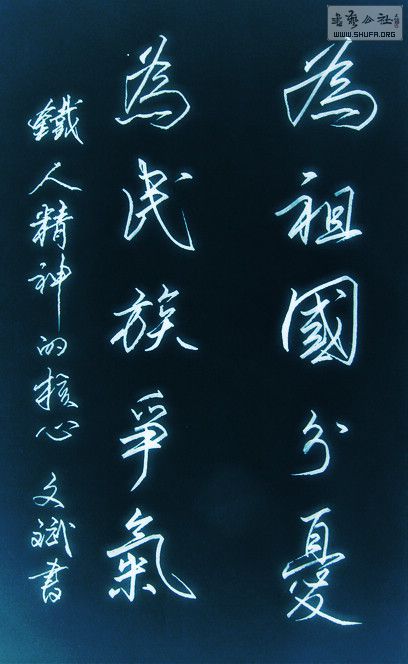 為祖國分憂
為民族爭氣
鐵人精神的核心 文斌書
書藝公社
WWW.SHUFA.ORG